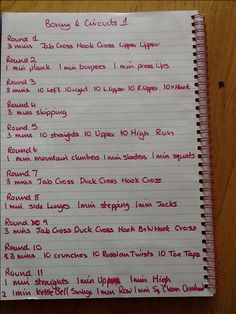 Boxing & Circuits 1.
Round 1
3 mins Jab Cross Hook Cross Upper Upper
Round 2
1 min plank 1 min burpees 1 min press ups
Round 3
3 mins 10 Left 10 right 10 L.upper 10 R.upper 10 x Hook
Round 4
3 mins skipping
Round 5
3 mins 10 straights 10 Upper 10 High Run
Round 6
1 min mountain climbers 1 min 1 min squats
Round 7
3 mins Jab Cross Duck Cross Hook Cross
Round 8
1 min side lunges 1 min stepping 1 min Jacks
Round 9
3 mins Jab Cross Duck Cross Hook B+W Hook Cross
Round 10
3 mins 10 crunches 10 Russian Twists 10 Toe Taps
Round 11
1 min straights 1 min Upper 1 min High
1 min Kettle Bell Swings 1 min Row 1 min Sq Clean